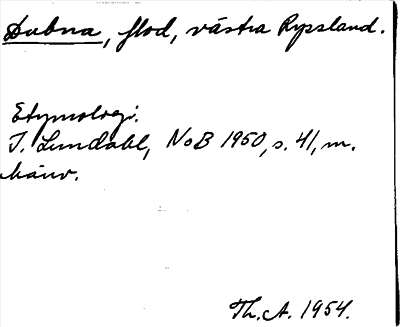 Dubna, flod, västra Ryssland.
Etymologi.
I. Lundahl, NoB 1950, s. 41, m.
hänv.
Th. A. 1954.